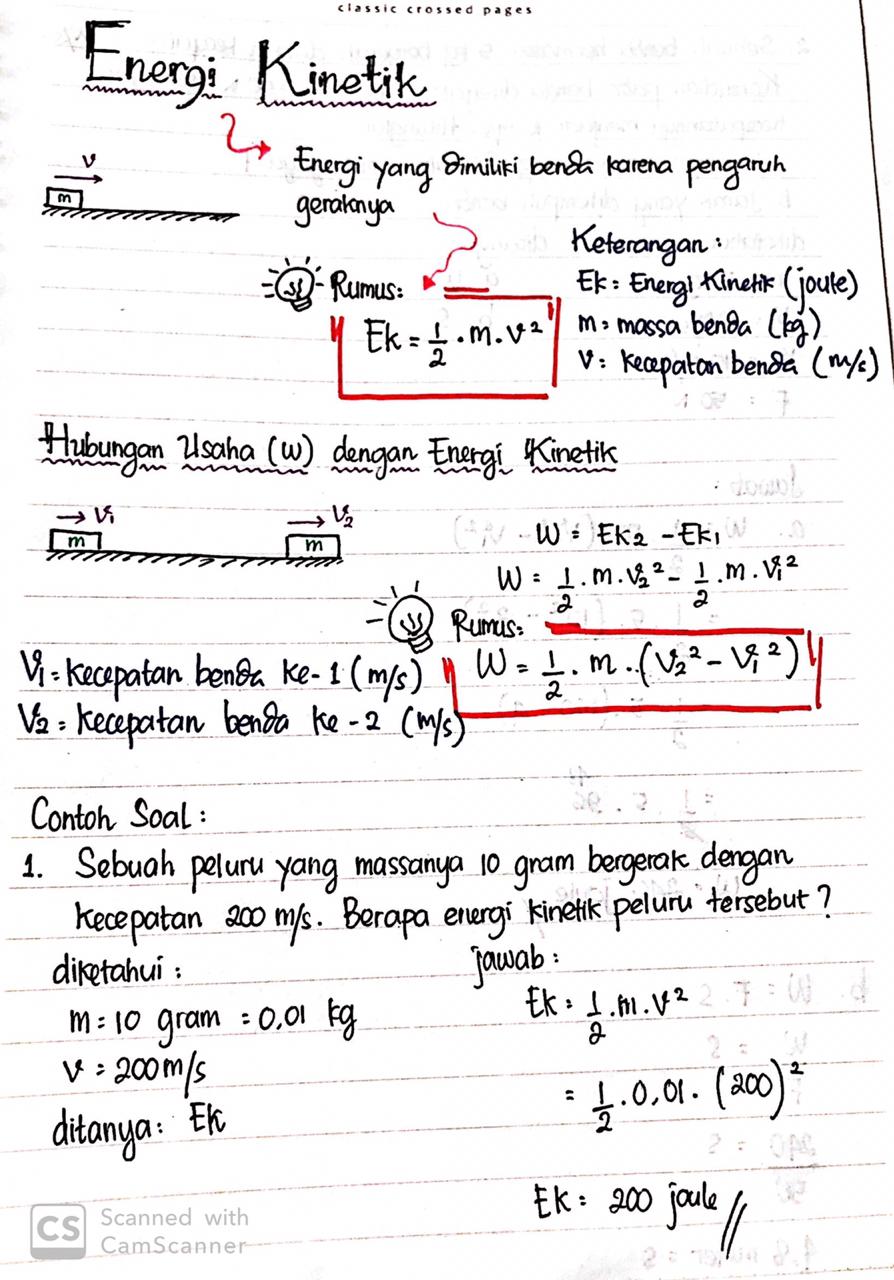 classic crossed pages
Energi Kinetik
Energi yang dimiliki benda karena pengaruh
geraknya
v
m
Keterangan :
Rumus:
Ek : Energi Kinetik (joule)
Ek = 1/2 . m . v²
m : massa benda (kg)
v : kecepatan benda (m/s)
Hubungan Usaha (W) dengan Energi Kinetik
V₁
V₂
m
m
W = Ek₂ - Ek₁
W = 1/2 . m . V₂² - 1/2 . m . V₁²
Rumus:
W = 1/2 . m . (V₂² - V₁²)
V₁ = kecepatan benda ke-1 (m/s)
V₂ = kecepatan benda ke-2 (m/s)
Contoh Soal :
1. Sebuah peluru yang massanya 10 gram bergerak dengan
kecepatan 200 m/s. Berapa energi kinetik peluru tersebut ?
diketahui :
m = 10 gram = 0,01 kg
v = 200 m/s
ditanya : Ek
jawab :
Ek = 1/2 . m . v²
= 1/2 . 0,01 . (200)²
Ek = 200 joule //
CS Scanned with
CamScanner